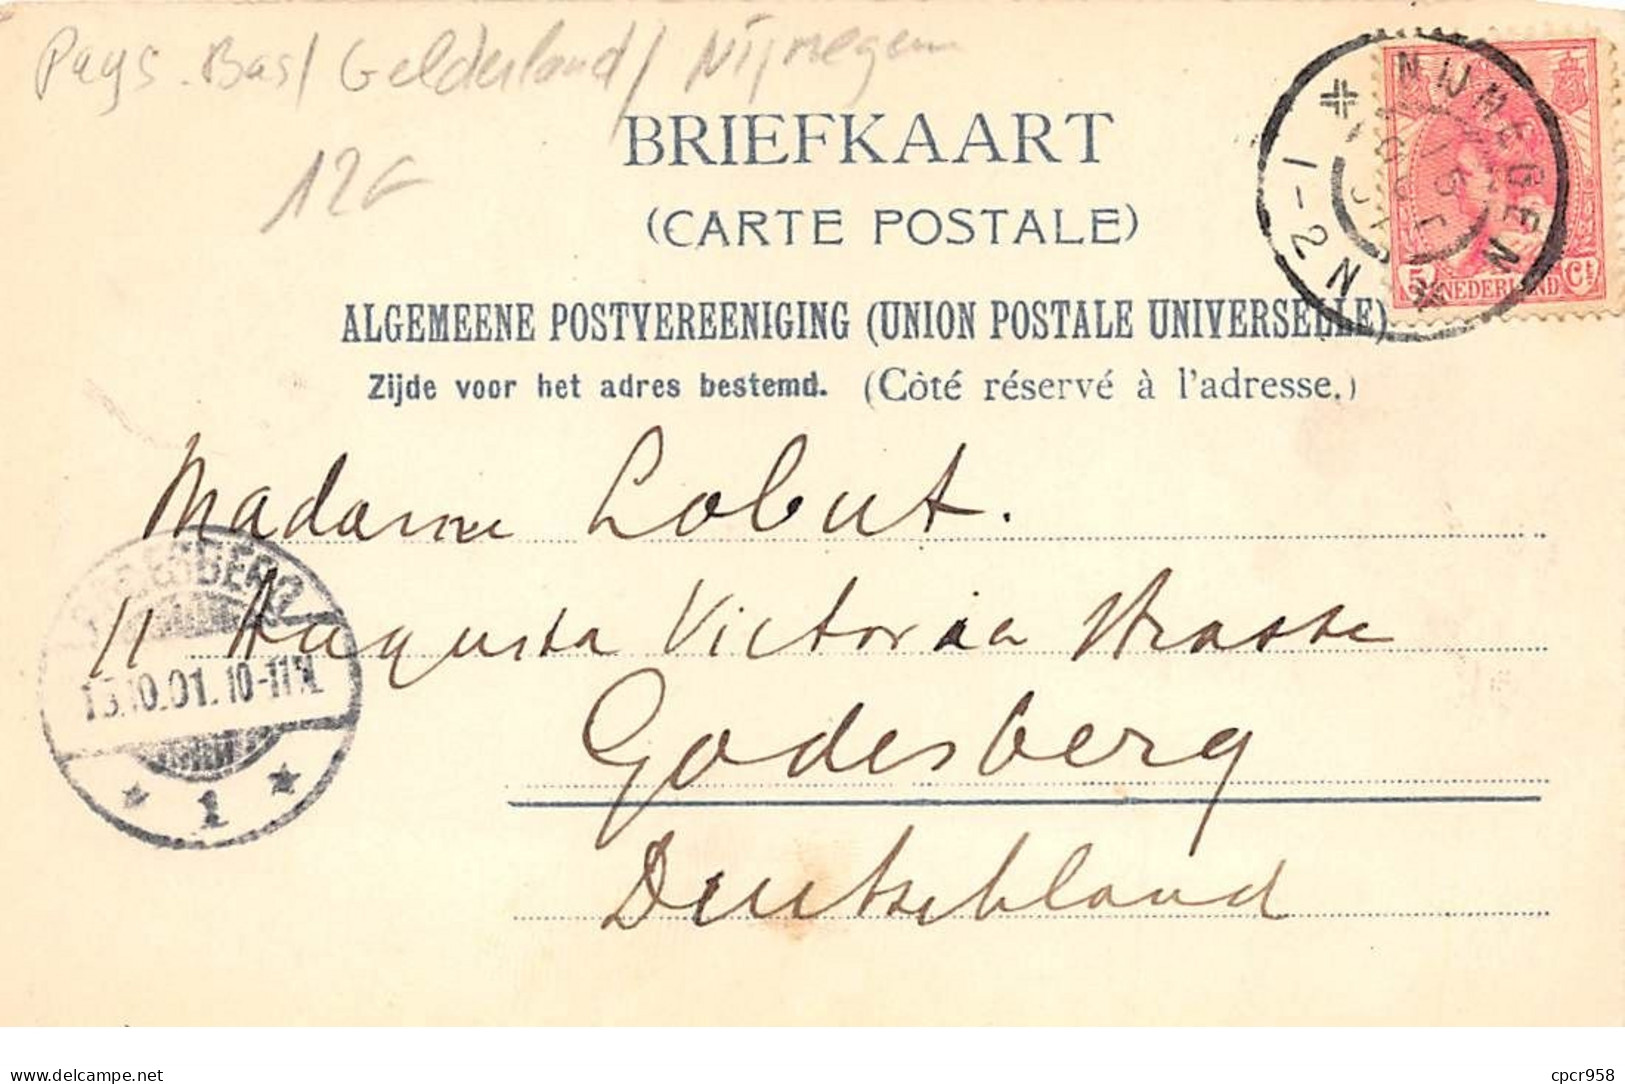 Pays-Bas/ Gelderland/ Nijmegen
12€
BRIEFKAART
(CARTE POSTALE)
ALGEMEENE POSTVEREENIGING (UNION POSTALE UNIVERSELLE)
Zijde voor het adres bestemd. (Côté réservé à l'adresse.)
NIJMEGEN
1-2 N
5 NEDERLAND Ct
Madame Lobut.
11 Augusta Victoria Strasse
Godesberg
Deutschland
GODESBERG
13.10.01. 10-11V.
1
delcampe.net
cpcr958